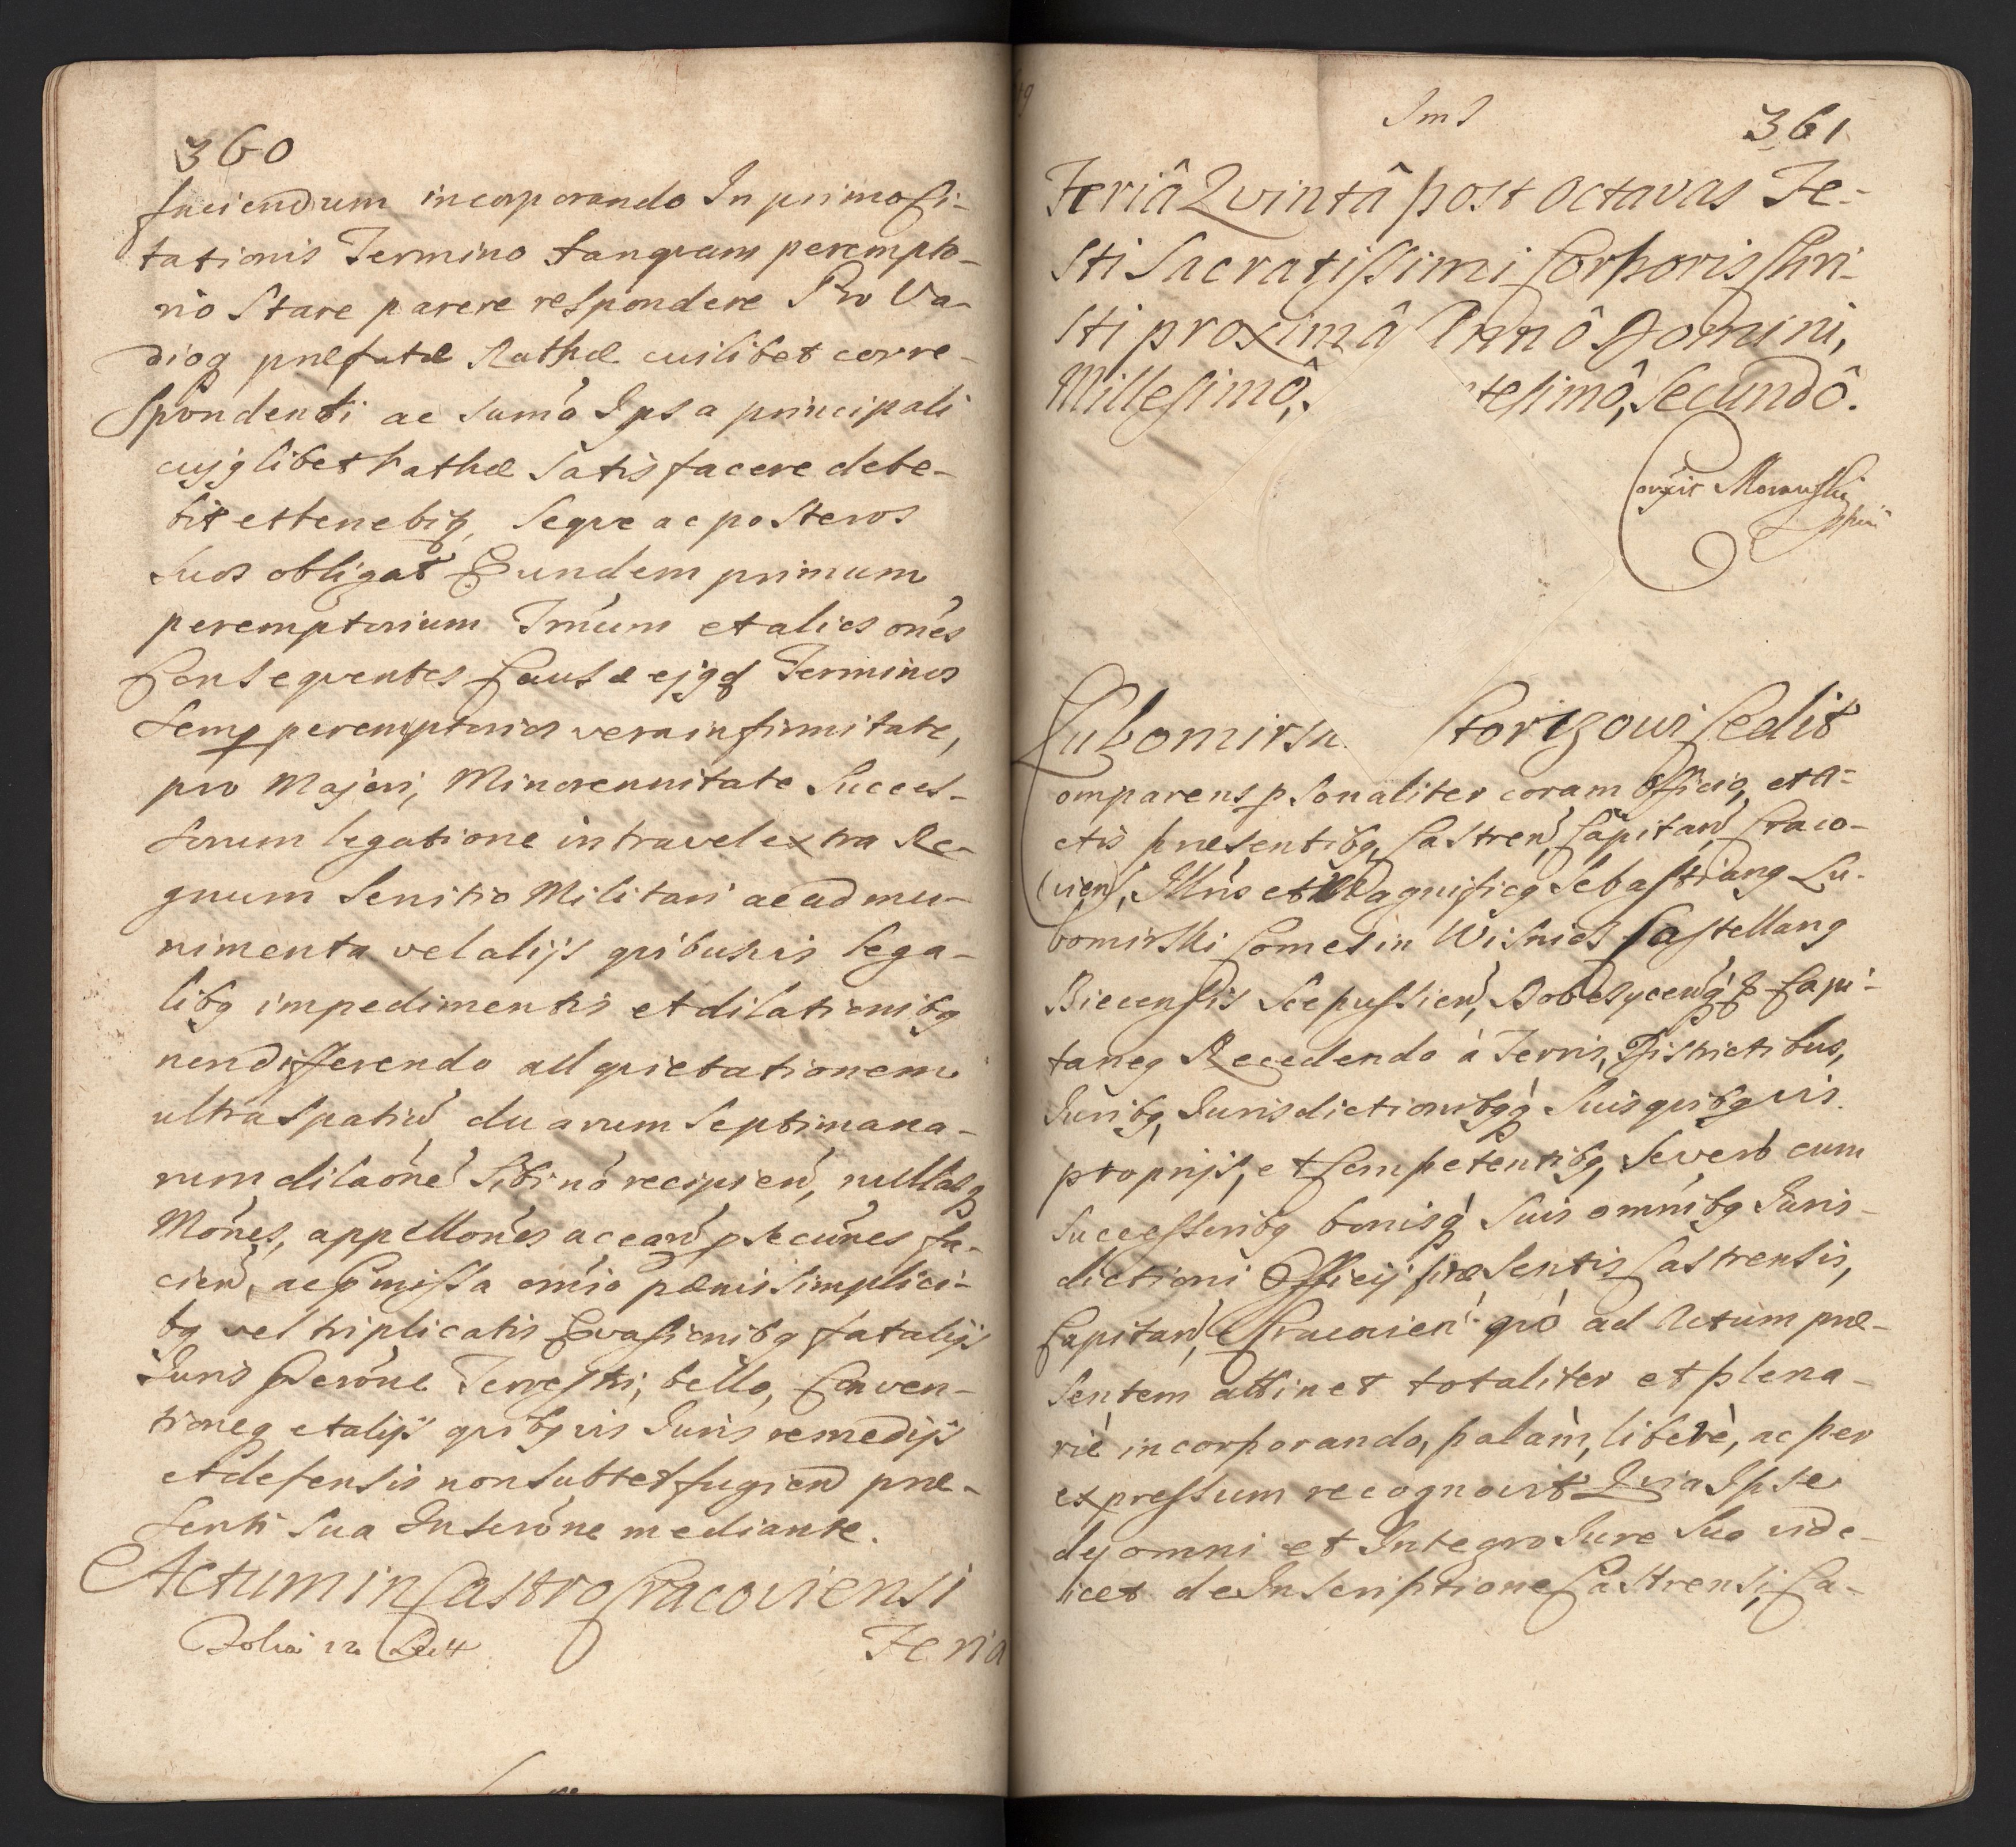 360
faciendum incorporando In primo Ci-
tationis Termino tanqvam perempto-
rio Stare parere respondere Pro Va-
dioq præfatæ Rathæ cuilibet corre-
spondenti ac suma Ipsa principali
cujqlibet rathæ Satisfacere debe-
bit et tenebitq, Seqve ac posteros
suos obligat Eundem primum
peremptorium Trnum et alios ones
Conseqventes Causæ ejqd Terminos
semp peremptorios vera infirmitate,
pro Majori, Minorennitate Succes-
sorum legatione intra vel extra Re-
gnum Servitio Militari ac ad mu-
nimenta vel alijs qvibusvis lega-
libq impedimentis et dilationibq
non differendo ad qvietationem
ultra spatiu duarum Septimana-
rum dilaone Sibi no recipien, nullasq
Mones, appellones ac ean psecunes fa-
cien, ac pmissa omia pænis simplici-
bq vel triplicatis Evasionibq fatalijs
Juris Terrestri, bello, Conven-
tioneq et alijs qvibqvis Juris remedijs
et defensis non subterfugien præ-
senti Sua Inscrone mediante.
Actum in Castro Cracoviensi
Feria
361
Feriâ Qvintâ post Octavas Fe-
sti Sacratissimi Corporis Chri-
sti proximâ Annô Domini,
Millesimô, tesimô, Secundô.
Lubomirsk Storizowi Cedit
omparens psonaliter coram Officio, et A-
ctis præsentibq Castren, Capitan, Craco-
vien, Illris et Magnificq Sebastianq Lu-
bomirski Comes in Wisnicz Castellanq
Biecensis Scepussien, Dobczycenq & Capi-
taneq Recedendo à Terris, Districtibus,
Juribq, Jurisdictionibqq Suis qvibqvis
proprijs, et Competentibq, Se vero cum
Successoribq bonisq Suis omnibq Juris-
dictioni Officij præsentis Castrensis,
Capitan, Cracovien qvo ad Actum præ-
sentem attinet totaliter et plena-
riè incorporando, palàm, liberè, ac per
expressum recognovit Qvia Ipse
de omni et Integro Jure Suo vide-
licet de Inscriptione Castrensi, Ca-